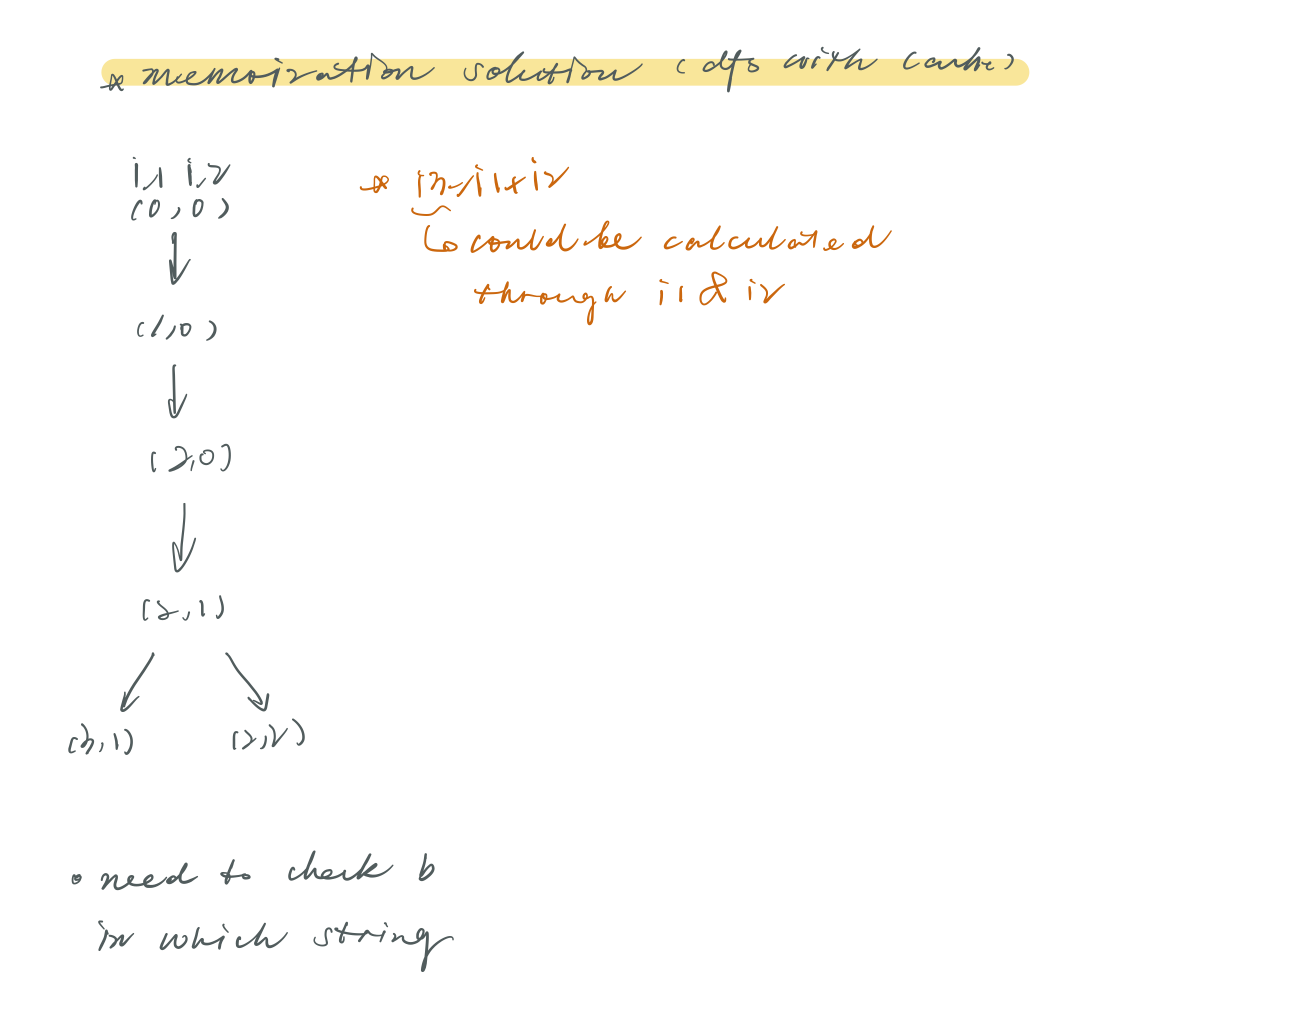 * memoization solution (dfs with cache)
i1 i2
(0,0)
* i3=i1+i2
could be calculated
through i1 & i2
(1,0)
(2,0)
(2,1)
(3,1) (2,2)
• need to check b
in which string